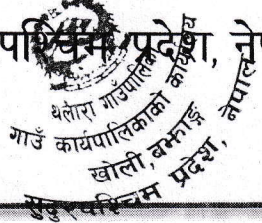 पश्चिम प्रदेश, ने
थलारा गाउँपालिका
गाउँ कार्यपालिकाको कार्यालय
खोली, बझाङ्ग
सुदूरपश्चिम प्रदेश, नेपाल